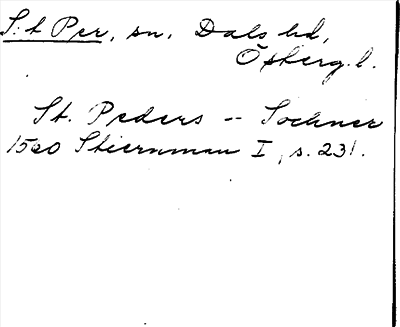 S:t Per, sn, Dals hd,
Östergl.
St. Peders -- Sochner
1560 Stiernman I, s. 231.